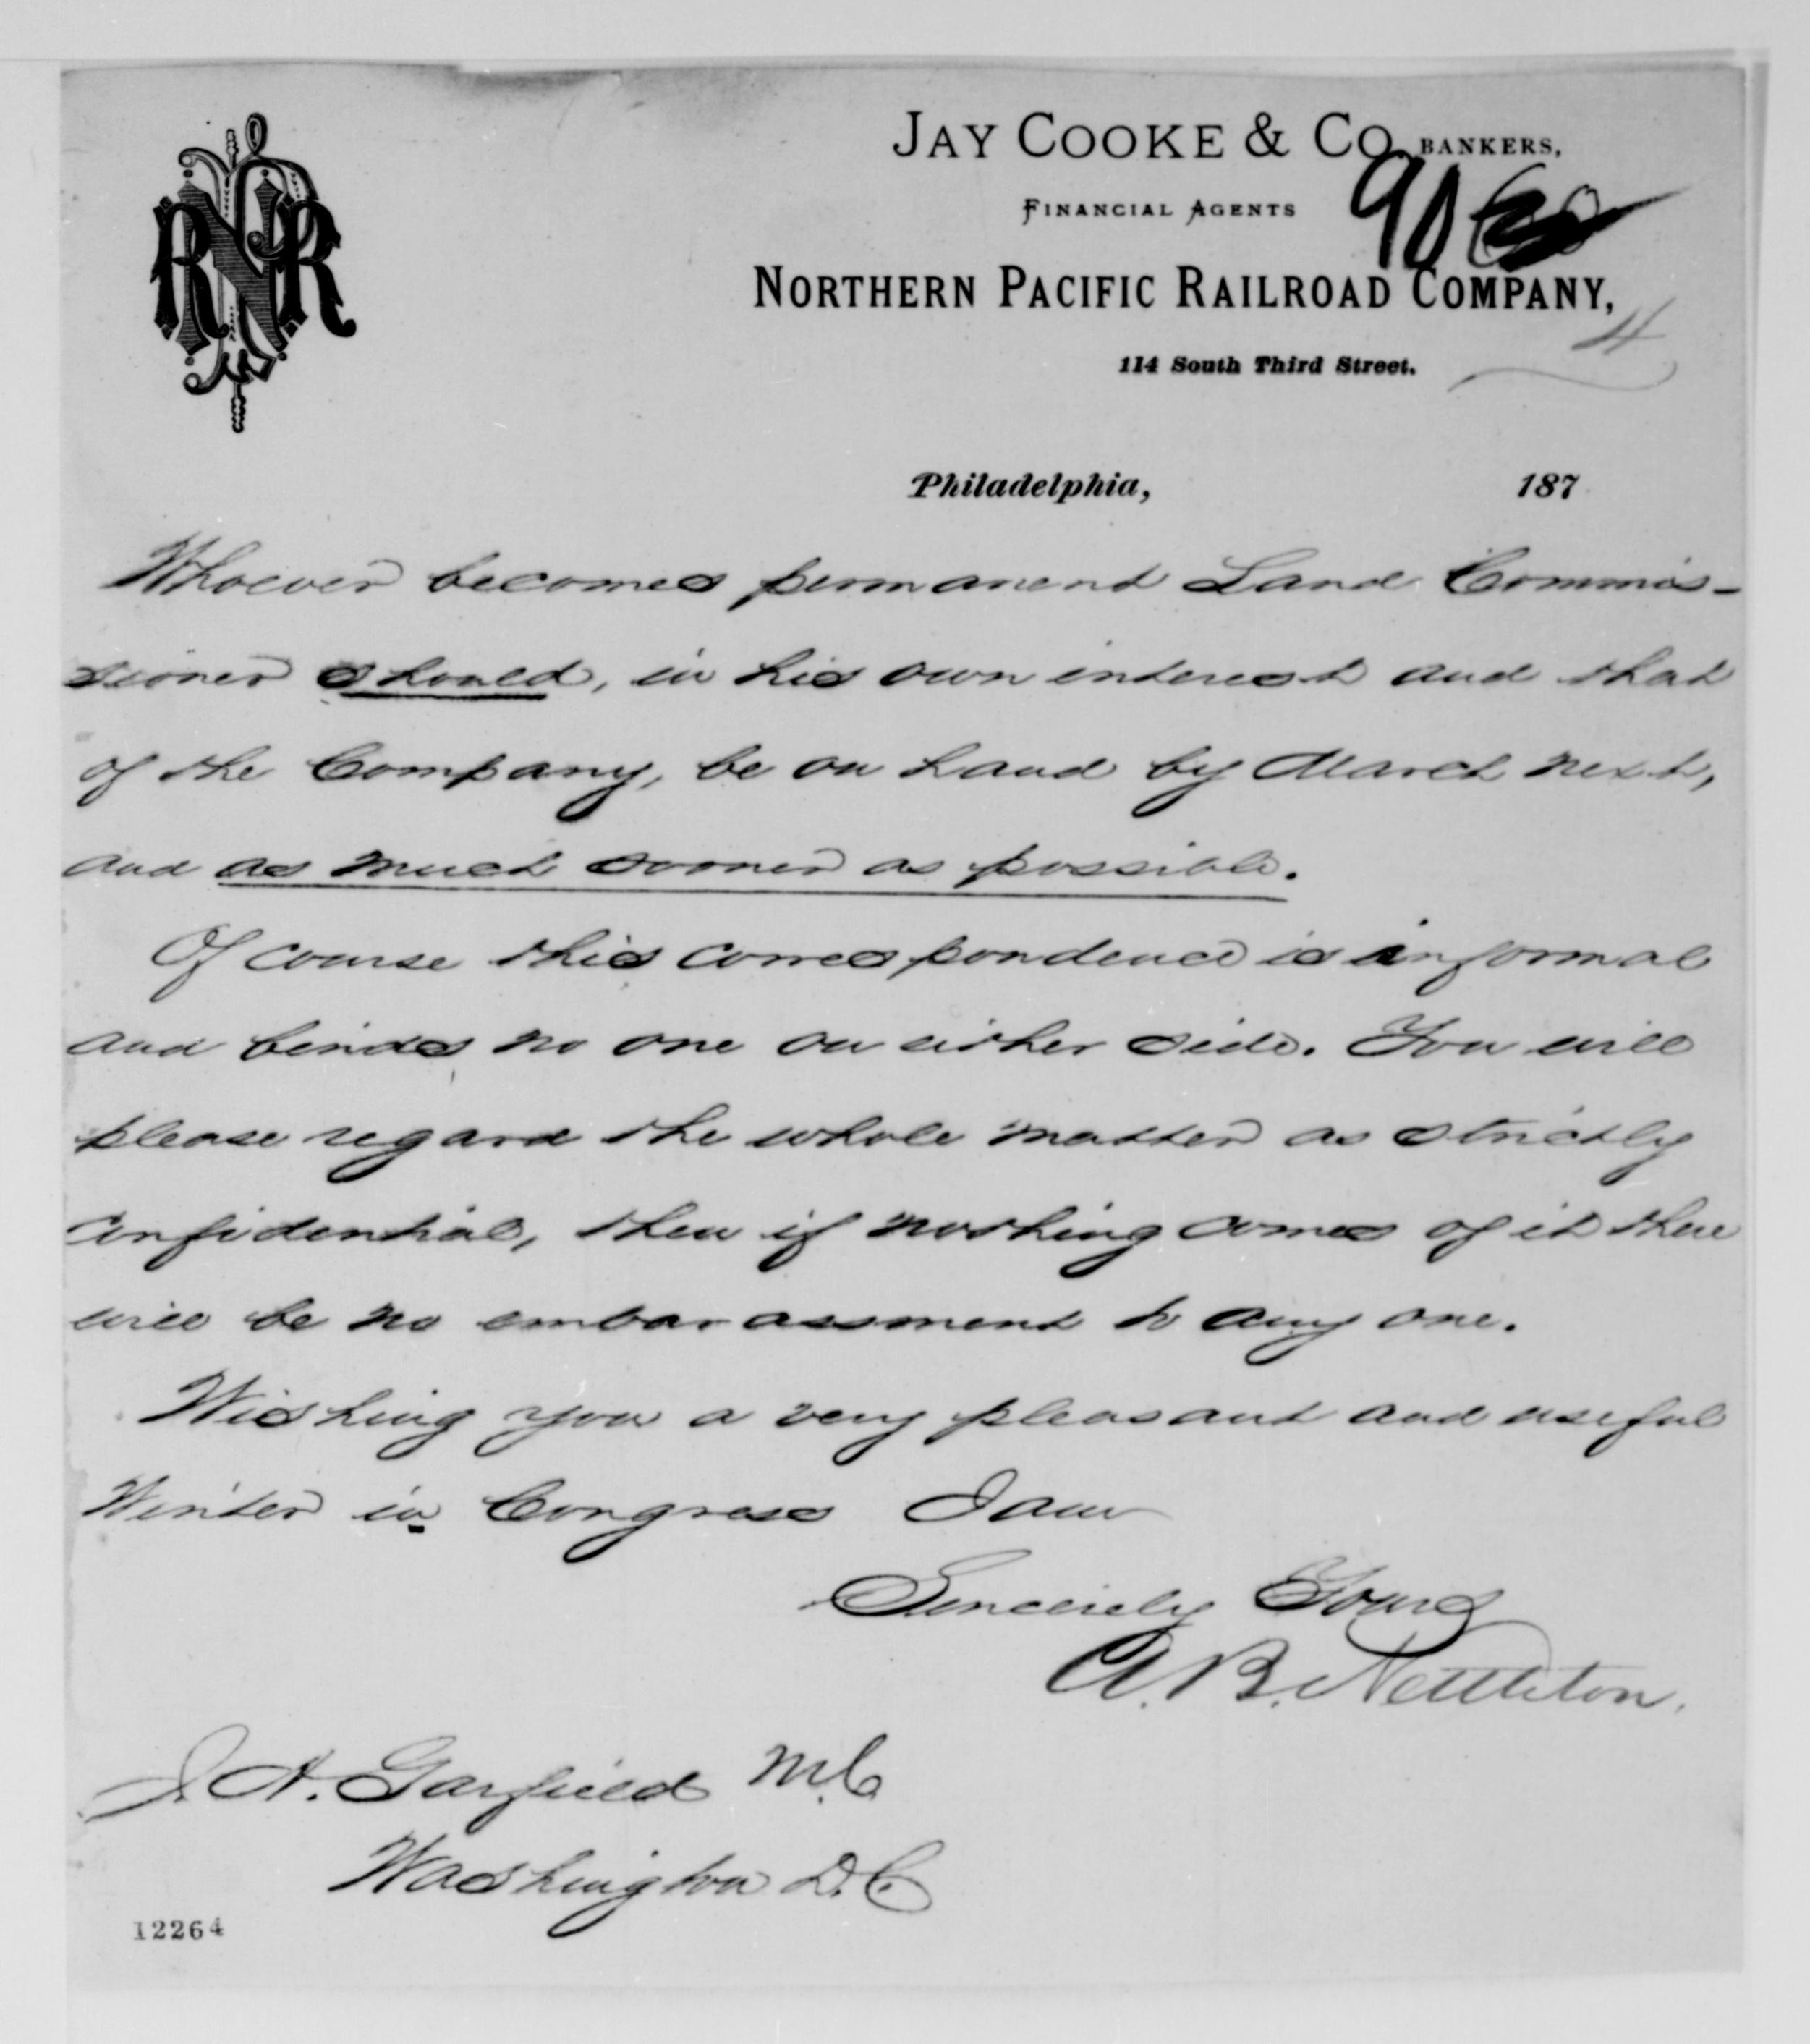 JAY COOKE & CO. BANKERS,
FINANCIAL AGENTS
90
NORTHERN PACIFIC RAILROAD COMPANY,
4
114 South Third Street.
Philadelphia, 187
Whoever becomes permanent Land Commis-
sioner should, in his own interest and that
of the Company, be on hand by March next,
and as much sooner as possible.
Of course this correspondence is informal
and binds no one on either side. You will
please regard the whole matter as strictly
confidential, then if nothing comes of it there
will be no embarassment to any one.
Wishing you a very pleasant and useful
Winter in Congress I am
Sincerely Yours
A. B. Nettleton.
J. A. Garfield M.C
Washington D.C.
12264